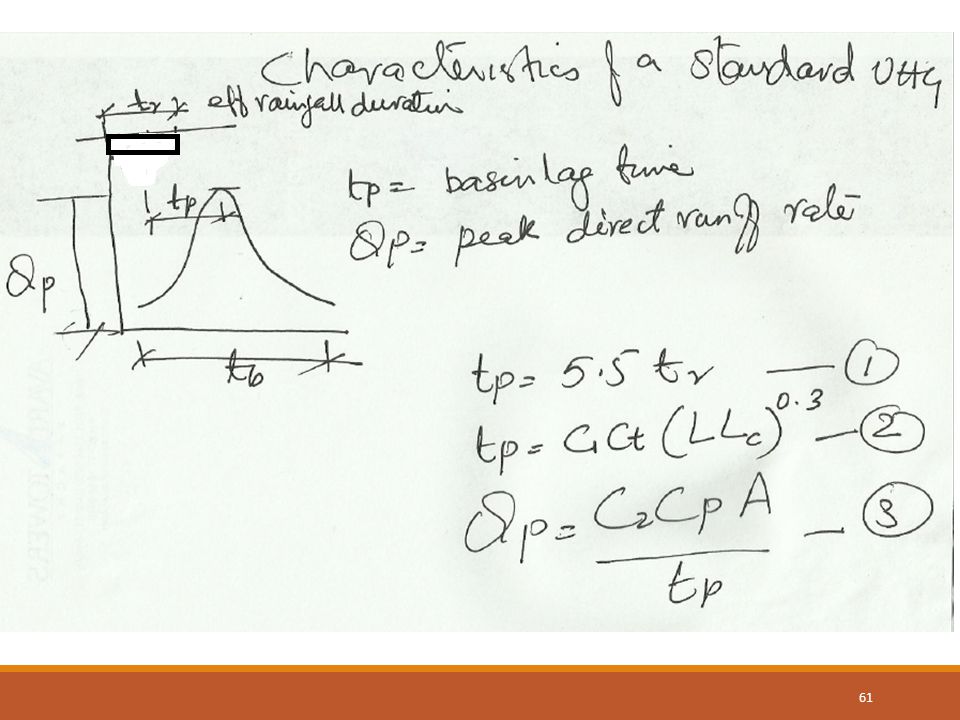 Characteristics of a Standard UHG
tr eff rainfall duration
tp
tp = basin lag time
Qp = peak direct runoff rate
Qp
tb
tp = 5.5 tr — 1
tp = C1Ct (LLc)^0.3 — 2
Qp = C2CpA / tp — 3
61